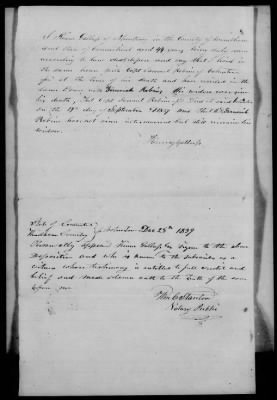 I Hiram Gallup of Voluntown in the County of Windham
and State of Connecticut aged 44 years being duly sworn
according to law do depose and say that I lived in
the same town with Capt Samuel Robins of Voluntown
at the time of his death and have resided in the
same town with Robins his widow ever since
his death, That Capt Samuel Robins
on the 19th day of September 1827 and that
Robins has not since intermarried but still remains his
widow.
Hiram Gallup
State of Connecticut
Windham County Voluntown Dec 25th 1839
Personally appeared Hiram Gallup Esq Signer to the above
deposition and who is known to the subscriber as a
witness whose testimony is entitled to full credit and
belief and made solemn oath to the truth of the same
before me
Stanton
Notary Public